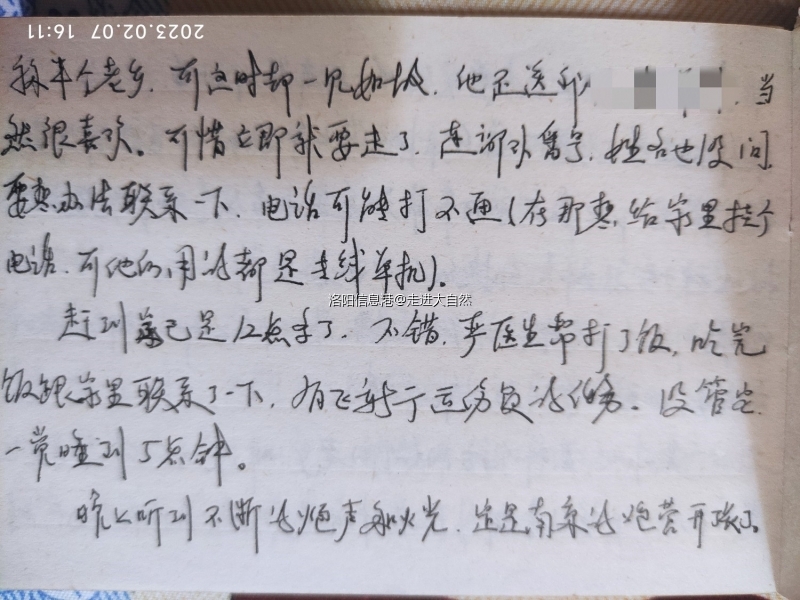 2023.02.07 16:11
称半个老乡,可这时却一见如故,他还送我 当
然很喜欢。可惜立即就要走了,连部队番号,姓名也没问,
要想办法联系一下,电话可能打不通(在那想给家里挂个
电话,可他们用的都是专线单机)。
洛阳信息港@走进大自然
赶到 已是12点多了,不错,严医生帮打了饭,吃完
饭跟家里联系了一下,有飞 运伤员的任务。没管它,
一觉睡到5点钟。
晚上听到不断的炮声和火光,准是南京的炮营开张了。